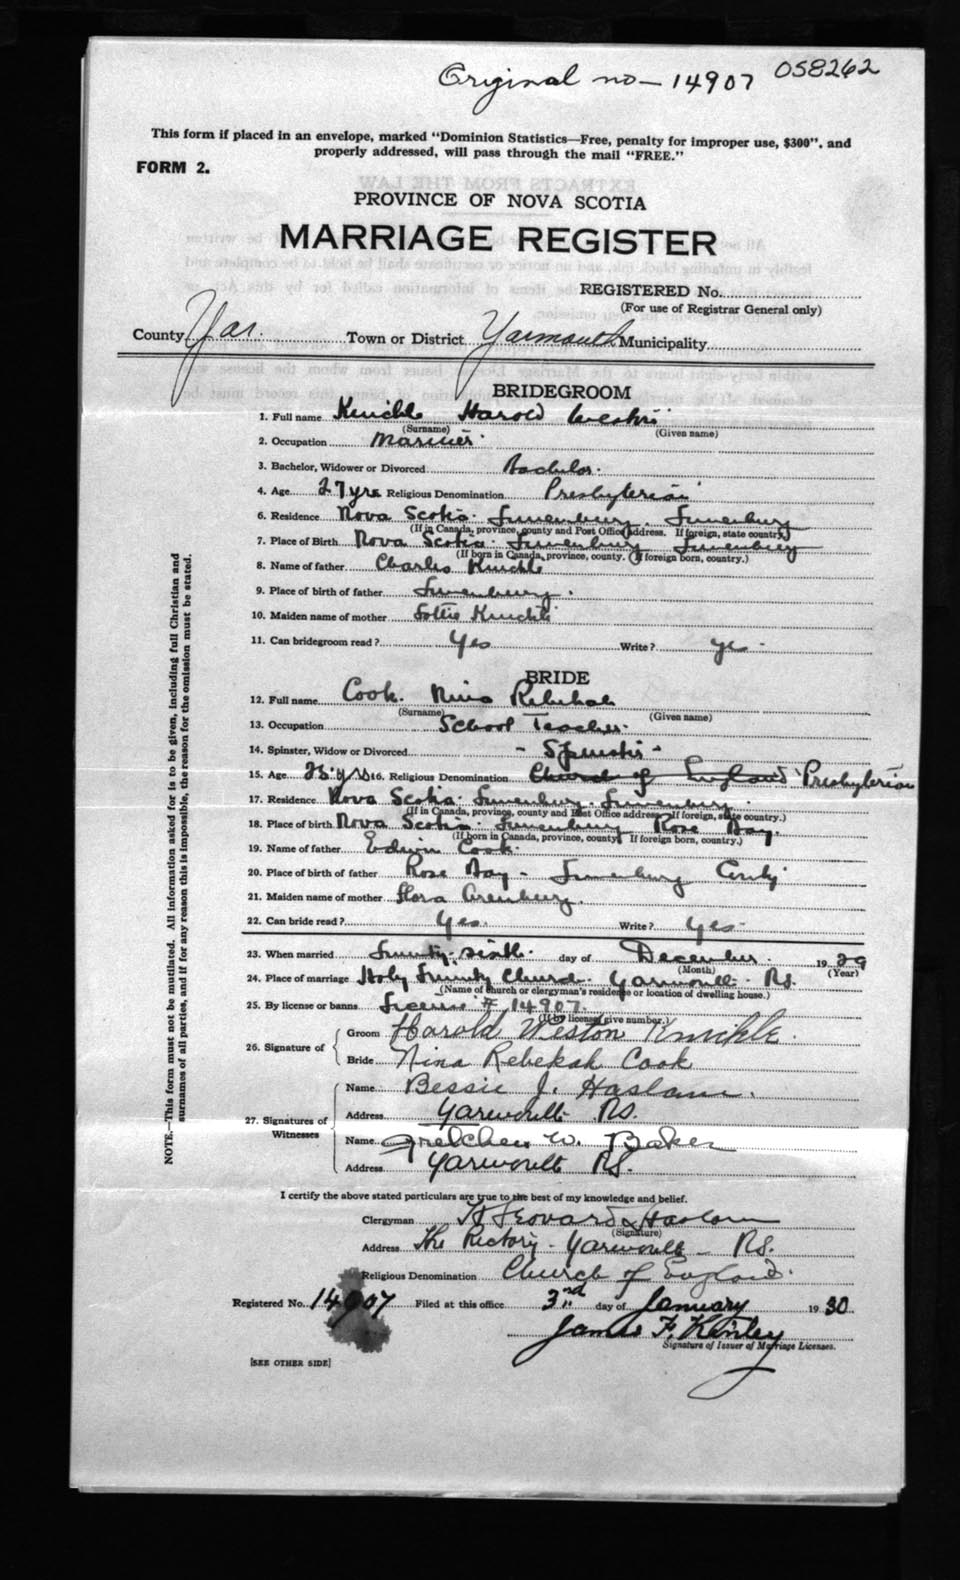 Original no - 14907 058262
This form if placed in an envelope, marked "Dominion Statistics—Free, penalty for improper use, $300", and
properly addressed, will pass through the mail "FREE."
FORM 2.
PROVINCE OF NOVA SCOTIA
MARRIAGE REGISTER
REGISTERED No.
(For use of Registrar General only)
County Yar. Town or District Yarmouth Municipality
BRIDEGROOM
1. Full name Knickle Harold Weston
(Surname) (Given name)
2. Occupation Mariner
3. Bachelor, Widower or Divorced Bachelor.
4. Age 27 yrs Religious Denomination Presbyterian
6. Residence Nova Scotia. Lunenburg. Lunenburg
(If in Canada, province, county and Post Office address. If foreign, state country.)
7. Place of Birth Nova Scotia. Lunenburg Lunenburg
(If born in Canada, province, county. (If foreign born, country.)
8. Name of father Charles Knickle
9. Place of birth of father Lunenburg.
10. Maiden name of mother Lottie Knickle
11. Can bridegroom read? Yes Write? Yes
BRIDE
12. Full name Cook. Nina Rebekah
(Surname) (Given name)
13. Occupation School Teacher.
14. Spinster, Widow or Divorced - Spinster -
15. Age 25 yrs 16. Religious Denomination Church of England Presbyterian
17. Residence Nova Scotia. Lunenburg. Lunenburg.
(If in Canada, province, county and Post Office address. If foreign, state country.)
18. Place of birth Nova Scotia. Lunenburg Rose Bay.
(If born in Canada, province, county. If foreign born, country.)
19. Name of father Edwin Cook.
20. Place of birth of father Rose Bay - Lunenburg County
21. Maiden name of mother Flora Arenburg.
22. Can bride read? Yes. Write? Yes-
23. When married Twenty-sixth. day of December. 1929
(Month) (Year)
24. Place of marriage Holy Trinity Church. Yarmouth. NS.
(Name of church or clergyman's residence or location of dwelling house.)
25. By license or banns License # 14907.
(If by license, give number.)
26. Signature of Groom Harold Weston Knickle.
Bride Nina Rebekah Cook
27. Signatures of Witnesses Name Bessie J. Haslam.
Address Yarmouth NS.
Name Gretchen W. Baker
Address Yarmouth NS.
I certify the above stated particulars are true to the best of my knowledge and belief.
Clergyman Leonard Haslam
(Signature)
Address The Rectory - Yarmouth - NS.
Religious Denomination Church of England.
Registered No. 14907 Filed at this office 3rd day of January 1930
James F. Kinley
Signature of Issuer of Marriage Licenses.
[SEE OTHER SIDE]
NOTE.—This form must not be mutilated. All information asked for is to be given, including full Christian and
surnames of all parties, and if for any reason this is impossible, the reason for the omission must be stated.
EXTRACTS FROM THE LAW